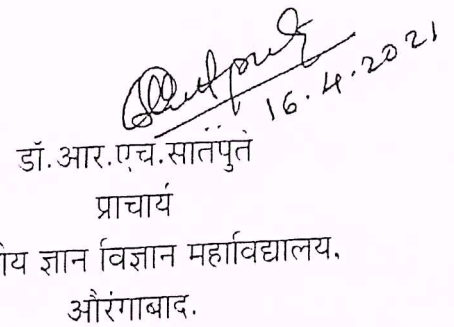 16.4.2021
डॉ.आर.एच.सातपुते
प्राचार्य
ीय ज्ञान विज्ञान महाविद्यालय.
औरंगाबाद.